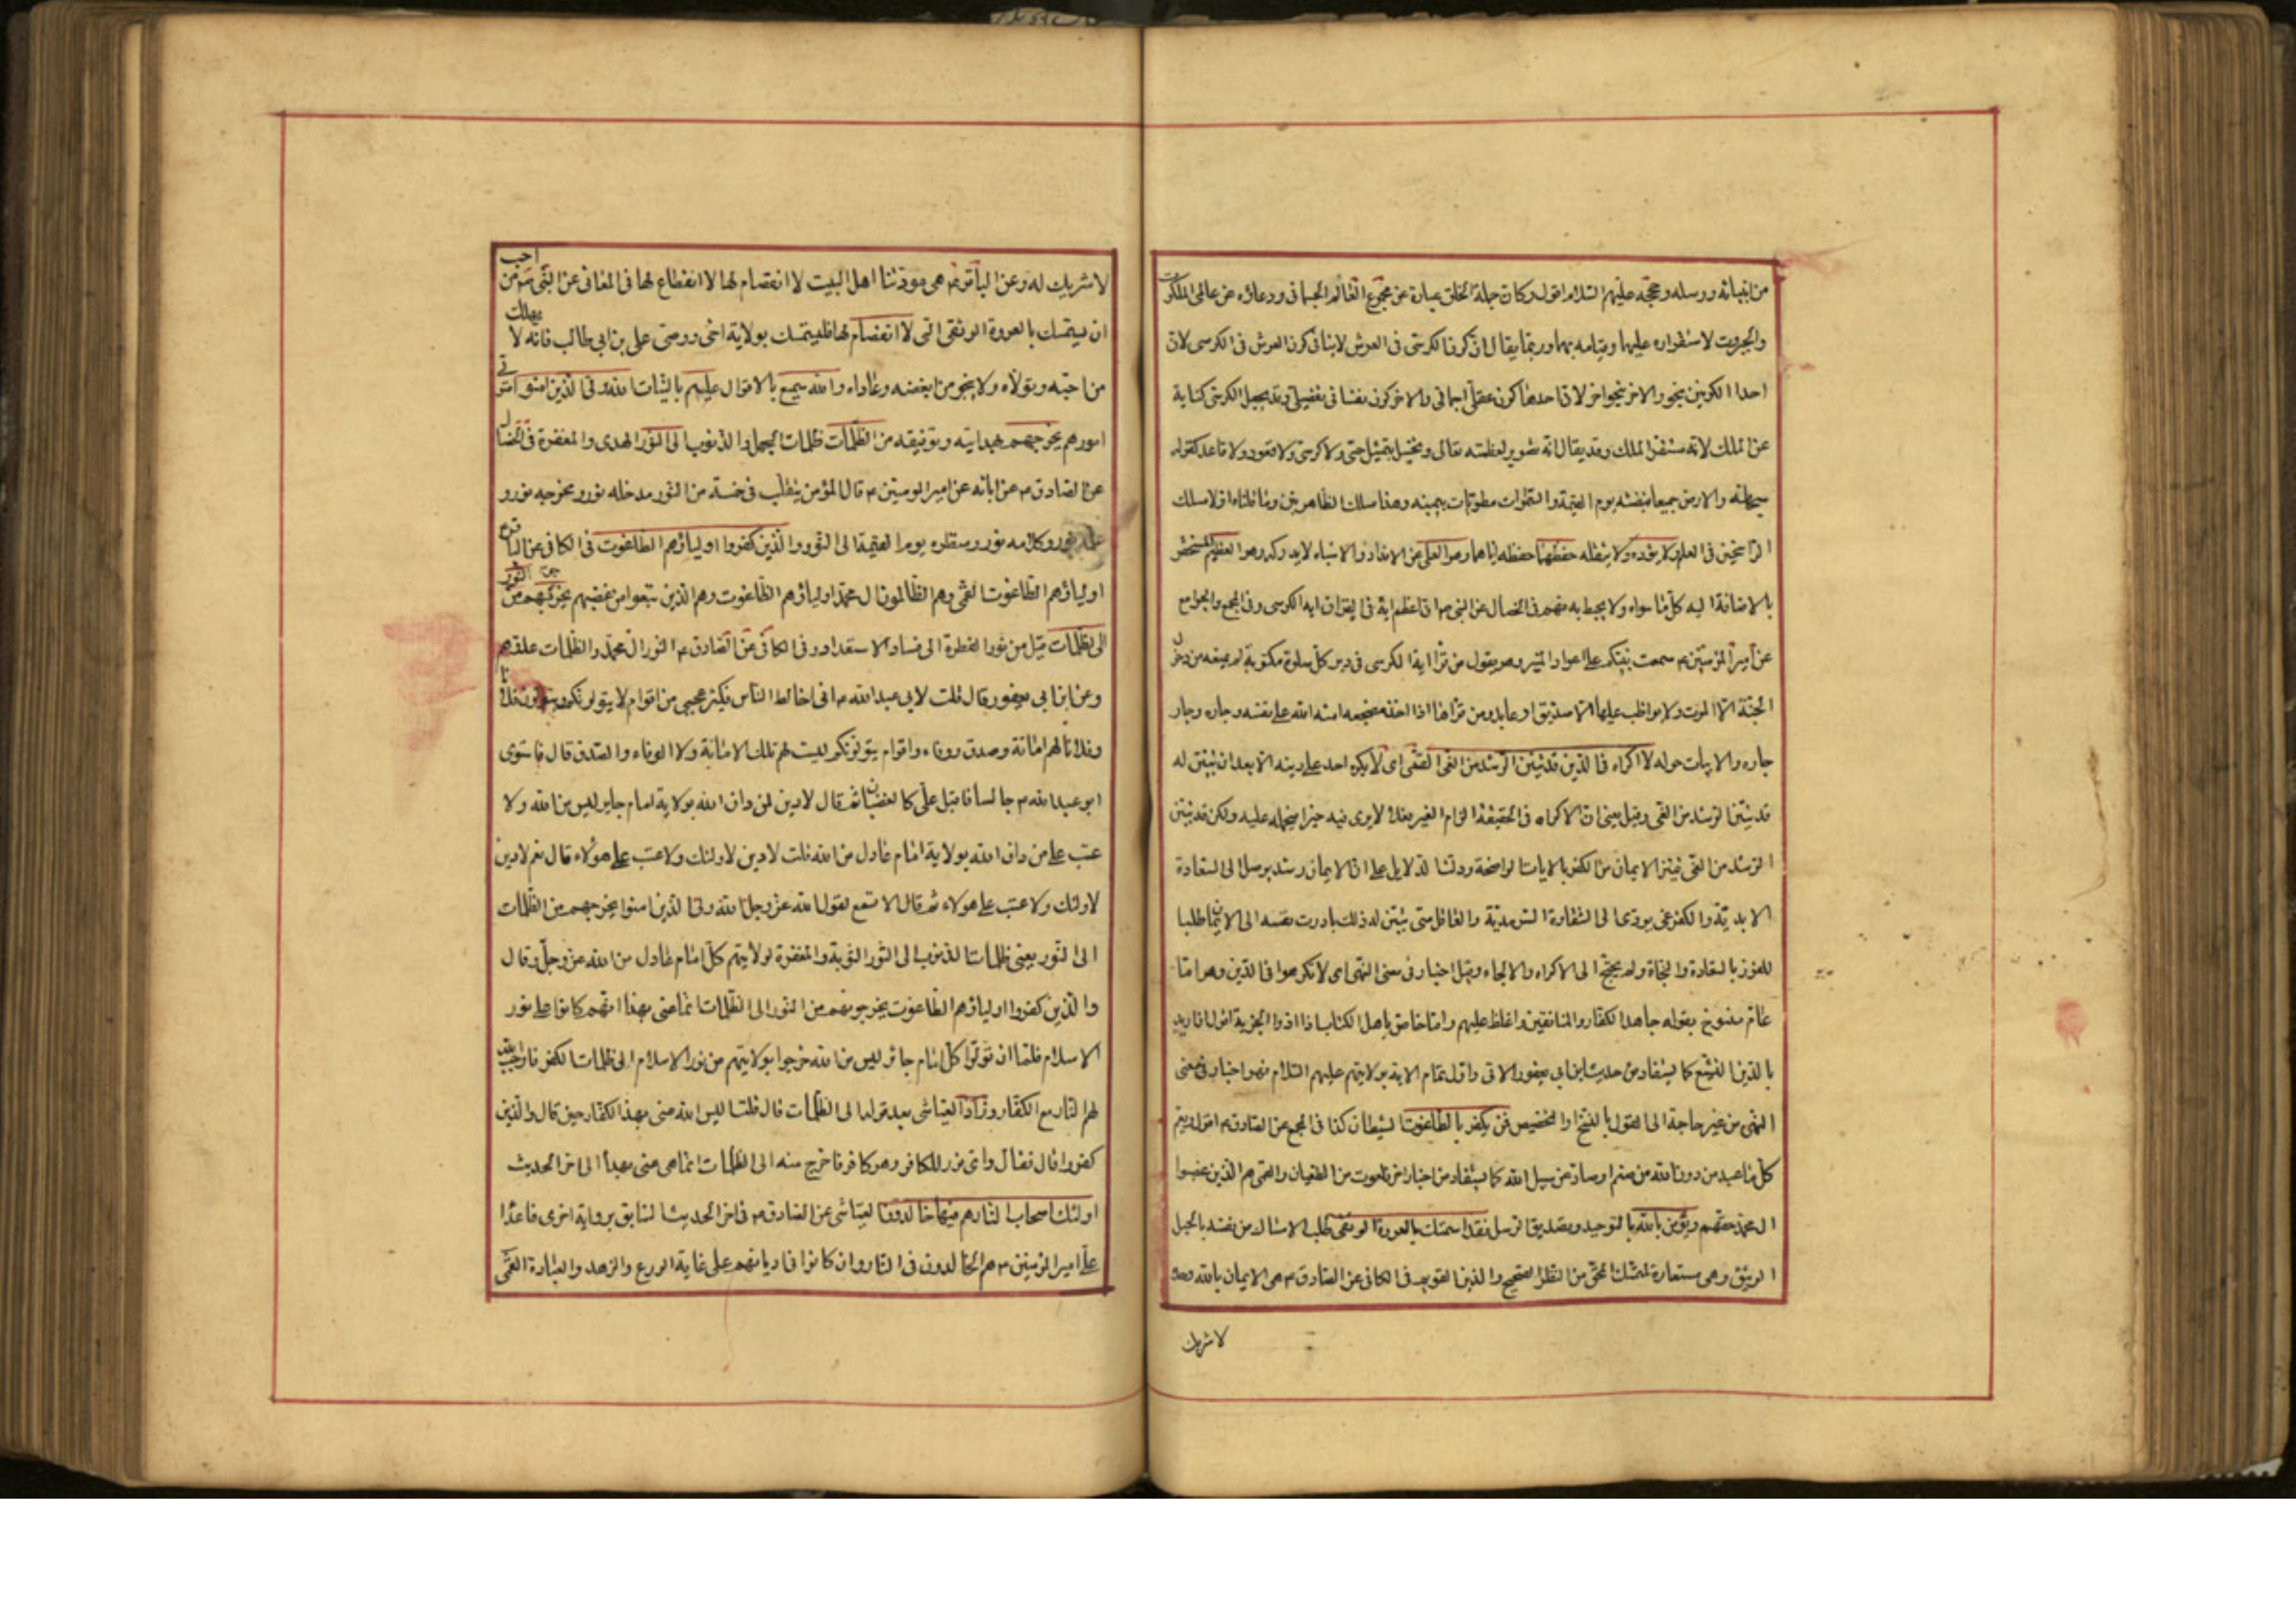 من انبيائه ورسله وحججه عليهم السلام اقول وكان جملة الخلق عبارة عن مجموع العالم الجسماني ووعاؤه عن عالمي الملكوت
والجبروت لاستقراره عليهما وقيامه بهما وربما يقال ان كون الكرسي في العرش لا ينافي كون العرش في الكرسي لان
احد الكونين بنحو والاخر بنحو اخر لان احدهما كون عقلي اجمالي والاخر كون نفساني تفصيلي وقد يجعل الكرسي كناية
عن الملك لانه مستقر الملك وقد يقال انه تصوير لعظمته تعالى وتخييل بتمثيل حسي ولا كرسي ولا قعود ولا قاعد كقوله
سبحانه والارض جميعا قبضته يوم القيمة والسموات مطويات بيمينه وهذا مسلك الظاهريين وما قلناه اولا مسلك
الراسخين في العلم ولا يؤده ولا يثقله حفظهما حفظه اياهما وهو العلي عن الانداد والاشباه لا يدركه وهم العظيم المستحقر
بالاضافة اليه كل ما سواه ولا يحيط به فهم في الخصال عن النبي ص ان اعظم اية في القران اية الكرسي وفي المجمع والجوامع
عن امير المؤمنين ع سمعت نبيكم على اعواد المنبر وهو يقول من قرأ اية الكرسي في دبر كل صلوة مكتوبة لم يمنعه من دخول
الجنة الا الموت ولا يواظب عليها الا صديق او عابد ومن قراها اذا اخذ مضجعه امنه الله على نفسه وجاره وجار
جاره والابيات حوله لا اكراه في الدين قد تبين الرشد من الغي القمي اي لا يكره احد على دينه الا بعد ان تبين له
قد تبين الرشد من الغي وقيل يعني ان الاكراه في الحقيقة الزام الغير فعلا لا يرى فيه خيرا يحمله عليه ولكن قد تبين
الرشد من الغي تميز الايمان من الكفر بالايات الواضحة ودلت الدلايل على ان الايمان رشد يوصل الى السعادة
الابدية والكفر غي يؤدي الى الشقاوة السرمدية والعاقل متى تبين له ذلك بادرت نفسه الى الايمان طلبا
للفوز بالسعادة والنجاة ولم يحتج الى الاكراه والالجاء وقيل اخبار في معنى النهي اي لا تكرهوا في الدين وهو اما
عام منسوخ بقوله جاهد الكفار والمنافقين واغلظ عليهم واما خاص باهل الكتاب اذا ادوا الجزية اقول ان اريد
بالدين التشيع كما يستفاد من حديث ابن ابي يعفور الاتي واول تمام الاية بولايتهم عليهم السلام فهو اخبار في معنى
النهي من غير حاجة الى القول بالنسخ والتخصيص فمن يكفر بالطاغوت الشيطان كذا في المجمع عن الصادق ع اقول ويعم
كل ما عبد من دون الله من صنم او صاد عن سبيل الله كما يستفاد من اخبار اخر فالطاغوت من الطغيان والقمي هم الذين غصبوا
ال محمد حقهم ويؤمن بالله بالتوحيد وتصديق الرسل فقد استمسك بالعروة الوثقى طلب الامساك من نفسه بالحبل
الوثيق وهي مستعارة لمتمسك الحق من النظر الصحيح والدين القويم في الكافي عن الصادق ع هي الايمان بالله وحده
لا شريك
لا شريك له وعن الباقر ع هي مودتنا اهل البيت لا انفصام لها لا انقطاع لها في المعاني عن النبي ص من احب
ان يستمسك بالعروة الوثقى التي لا انفصام لها فليستمسك بولاية اخي ووصي علي بن ابي طالب فانه لا يهلك
من احبه وتولاه ولا ينجو من ابغضه وعاداه والله سميع بالاقوال عليم بالنيات الله ولي الذين امنوا متولي
امورهم يخرجهم بهدايته وتوفيقه من الظلمات ظلمات الجهل والذنوب الى النور الهدى والمغفرة في الخصال
عن الصادق ع عن ابائه عن امير المومنين ع قال المؤمن يتقلب في خمسة من النور مدخله نور ومخرجه نور و
علمه نور وكلامه نور ومنظره يوم القيمة الى النور والذين كفروا اولياؤهم الطاغوت في الكافي عن الباقر ع
اولياؤهم الطاغوت القمي وهم الظالمون ال محمد اولياؤهم الطاغوت وهم الذين تبعوا من غصبهم يخرجونهم من النور
الى الظلمات قيل من نور الفطرة الى فساد الاستعداد وفي الكافي عن الصادق ع النور ال محمد والظلمات عدوهم
وعن ابن ابي يعفور قال قلت لابي عبد الله ع اني اخالط الناس فيكثر عجبي من اقوام لا يتولونكم ويتولون فلانا
وفلانا لهم امانة وصدق ووفاء واقوام يتولونكم ليست لهم تلك الامانة ولا الوفاء والصدق قال فاستوى
ابو عبد الله ع جالسا فاقبل علي كالغضبان ثم قال لا دين لمن دان الله بولاية امام جاير ليس من الله ولا
عتب على من دان الله بولاية امام عادل من الله قلت لا دين لاولئك ولا عتب على هؤلاء قال نعم لا دين
لاولئك ولا عتب على هولاء ثم قال الا تسمع لقول الله عز وجل الله ولي الذين امنوا يخرجهم من الظلمات
الى النور يعني ظلمات الذنوب الى النور التوبة والمغفرة لولايتهم كل امام عادل من الله عز وجل وقال
والذين كفروا اولياؤهم الطاغوت يخرجونهم من النور الى الظلمات انما عنى بهذا انهم كانوا على نور
الاسلام فلما ان تولوا كل امام جائر ليس من الله خرجوا بولايتهم من نور الاسلام الى ظلمات الكفر فاوجب الله
لهم النار مع الكفار وزاد العياشي بعد قوله الى الظلمات قال قلت اليس الله عنى بهذا الكفار حين قال والذين
كفروا قال فقال واي نور للكافر وهو كافر فاخرج منه الى الظلمات انما عنى بهذا الى اخر الحديث
اولئك اصحاب النار هم فيها خالدون العياشي عن الصادق ع في اخر الحديث السابق برواية اخرى فاعداء
علي امير المؤمنين ع هم الخالدون في النار وان كانوا في اديانهم على غاية الورع والزهد والعبادة القمي